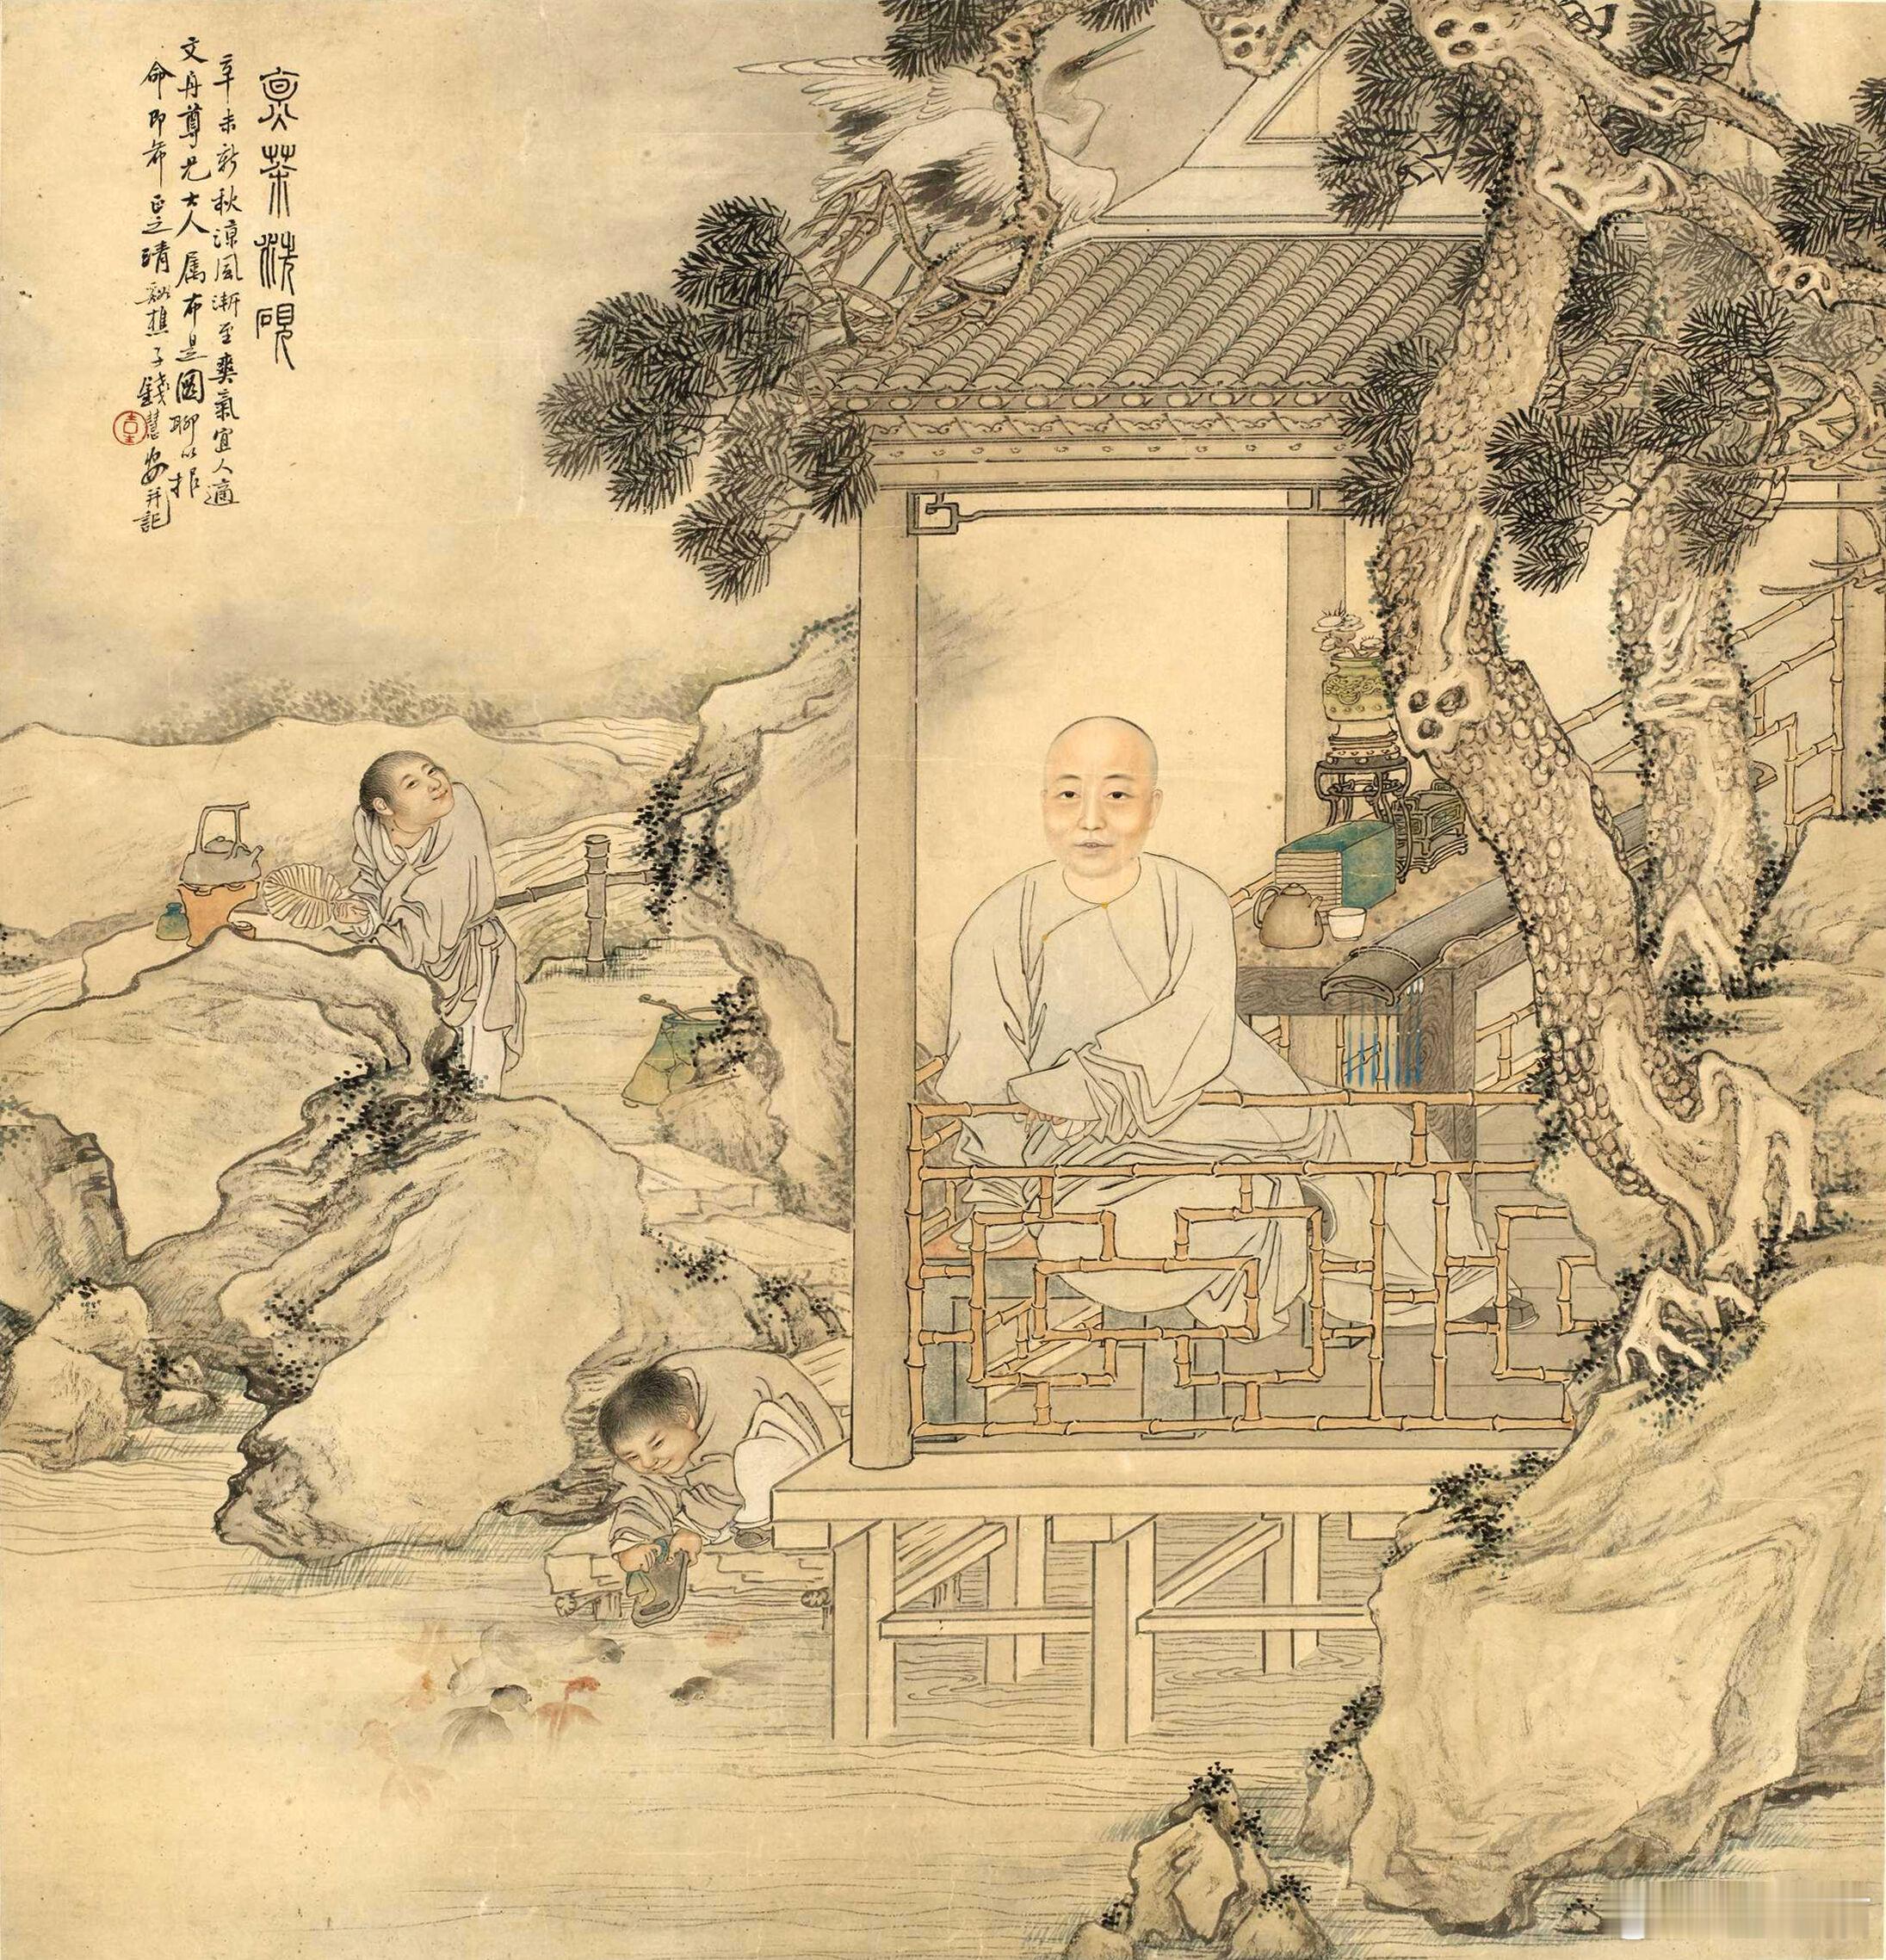 烹茶洗硯
辛未新秋涼風漸至爽氣宜人適
文舟尊兄大人属布是圖聊以報
命即希正之清谿樵子錢慧安并記